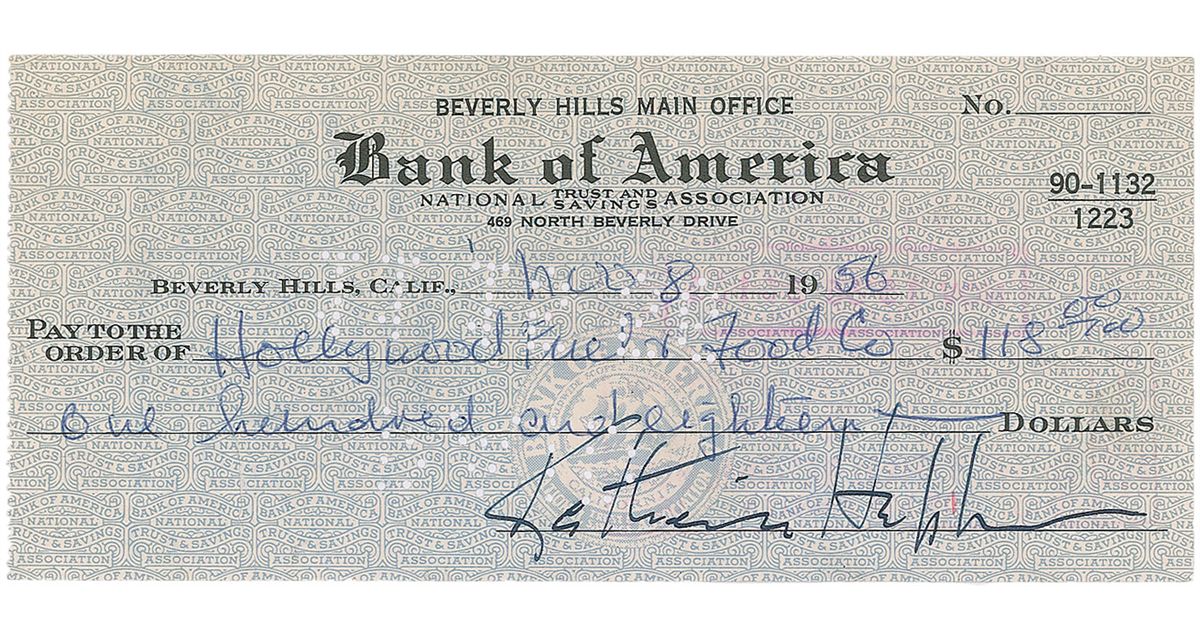 BEVERLY HILLS MAIN OFFICE No.
Bank of America
NATIONAL TRUST AND SAVINGS ASSOCIATION
469 NORTH BEVERLY DRIVE
90-1132
1223
BEVERLY HILLS, CALIF., 8 1956
PAY TO THE ORDER OF Hollywood Food Co $ 118 00/100
one hundred and eighteen DOLLARS
Katharine Hepburn